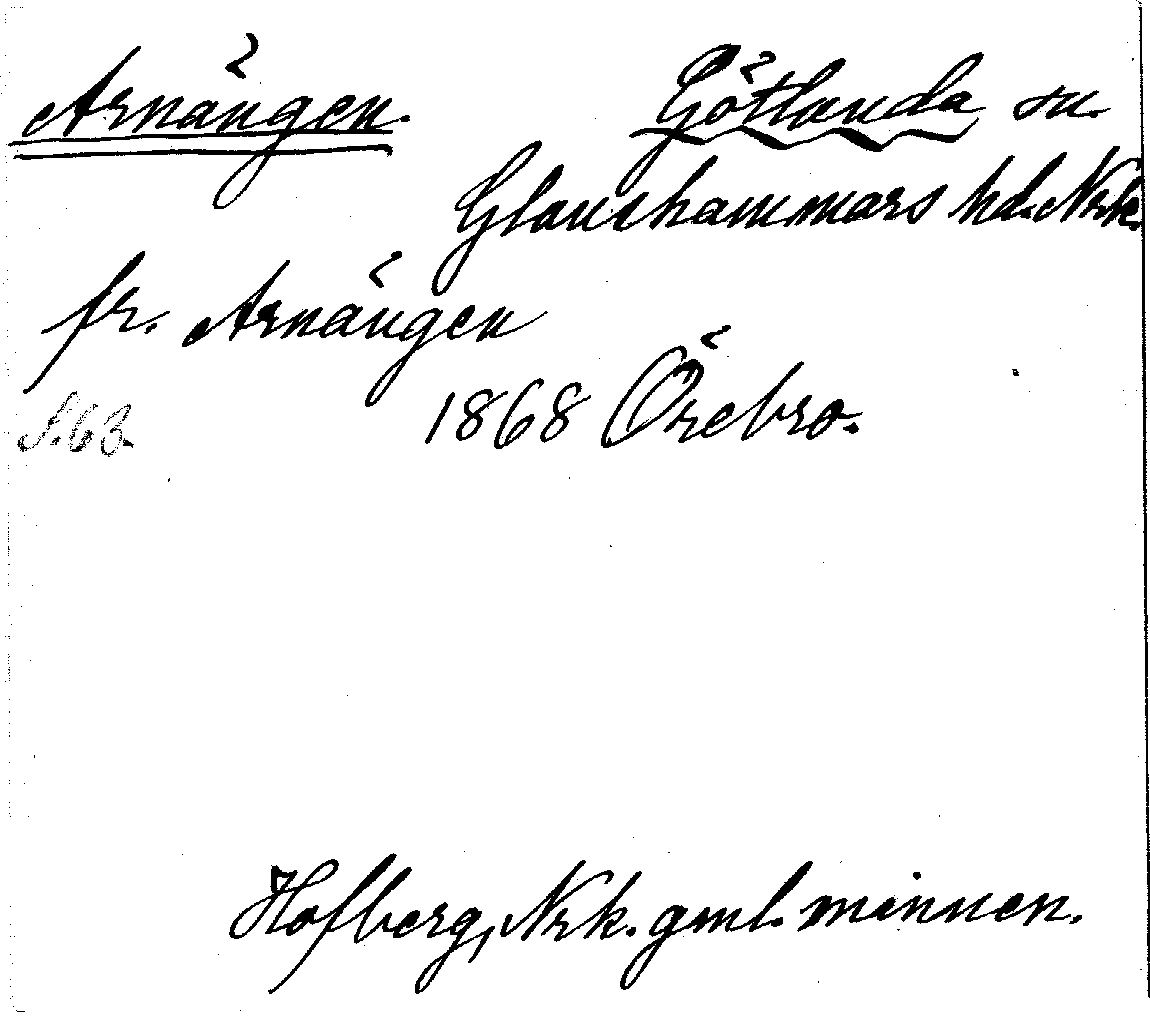 Arnängen. Götlanda sn.
Glanshammars hd. Nrk.
fr. Arnängen
S. 63. 1868 Örebro.
Hofberg, Nrk. gml. minnen.